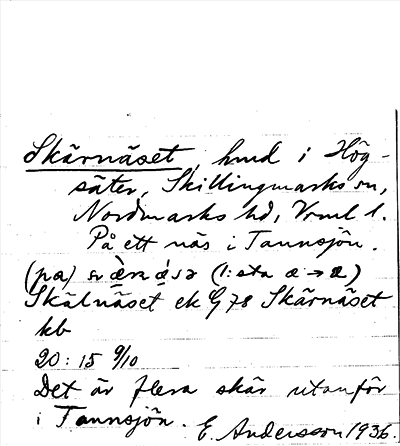 Skärnäset, hmd i Hög-
säter, Skillingmarks sn,
Nordmarks hd, Vrml l.
På ett näs i Tannsjön.
(pa)
Skälnäset ek G 78 Skärnäset
kb
20:15 9/10
Det är flera skär utanför
i Tannsjön. E. Andersson 1936.